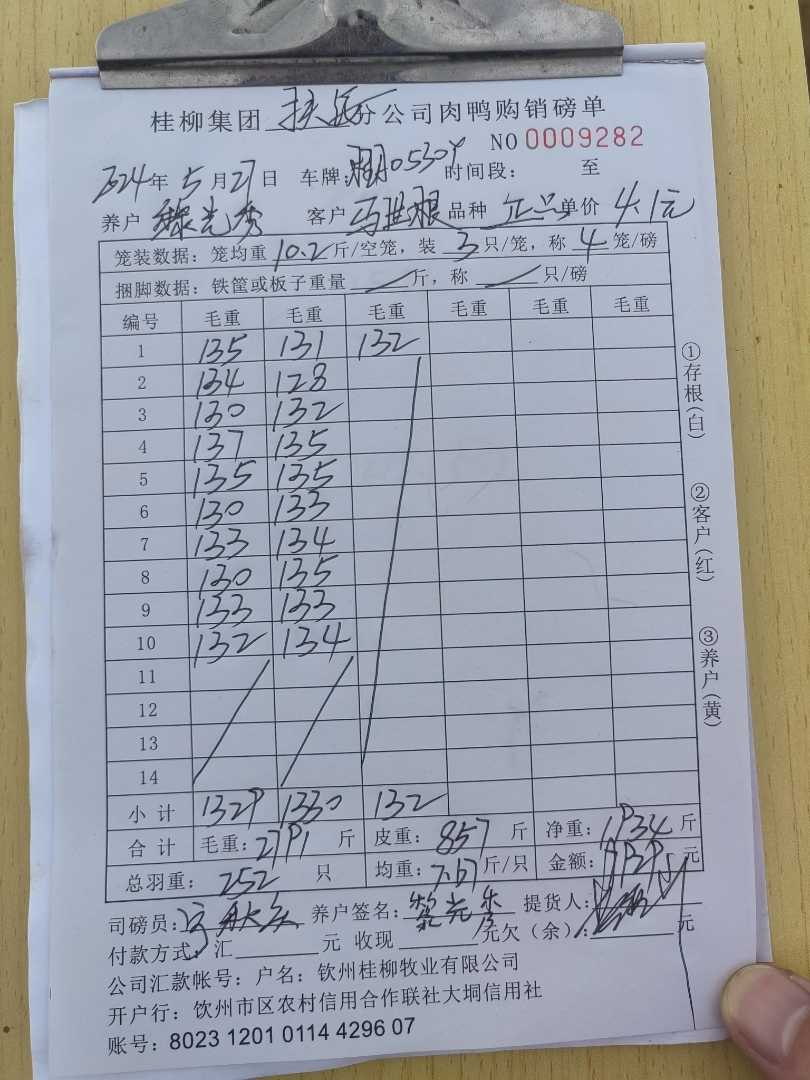 桂柳集团 分公司肉鸭购销磅单
NO 0009282
2024年 5月27日 车牌: 0530Y 时间段: 至
养户 光秀 客户 马世根 品种 正品 单价 4.1元
笼装数据:笼均重 10.2 斤/空笼,装 3 只/笼,称 4 笼/磅
捆脚数据:铁筐或板子重量 斤,称 只/磅
编号 毛重 毛重 毛重 毛重 毛重 毛重
1 135 131 132
2 134 128
3 130 132
4 137 135
5 135 135
6 130 133
7 133 134
8 130 135
9 133 133
10 132 134
11
12
13
14
小计 1329 1330 132
合计 毛重:2791 斤 皮重:857 斤 净重:1934 斤
总羽重:252 只 均重:7.67 斤/只 金额: 元
司磅员: 养户签名: 提货人:
付款方式:汇 元 收现 元欠(余): 元
公司汇款帐号:户名:钦州桂柳牧业有限公司
开户行:钦州市区农村信用合作联社大垌信用社
账号:8023 1201 0114 4296 07
①存根(白)
②客户(红)
③养户(黄)